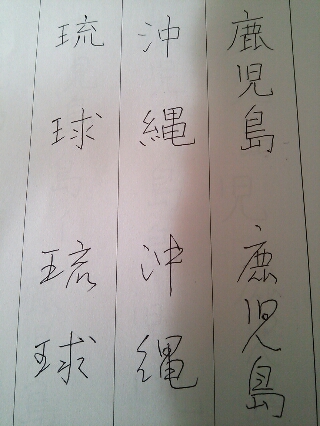 鹿児島
鹿児島
沖縄
沖縄
琉球
琉球